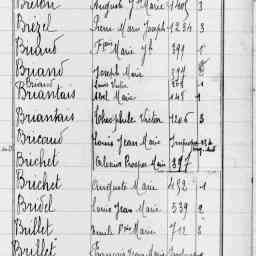 Breton Auguste Marie 1401 3
Brézel Pierre Marie Joseph 1234 3
Briand Fçois Marie Jh 399 1
Briand Joseph Marie 397
Briand Louis Victor
Briantais Abel Marie 145 1
Briantais Théophile Victor 1206 3
Bricaud Louis Jean Marie
Brichet Prosper Marie 397
Brichet Auguste Marie 492 1
Bridel Louis Jean Marie 539 2
Brillet Emile 712 3
Brillet François Jean Marie